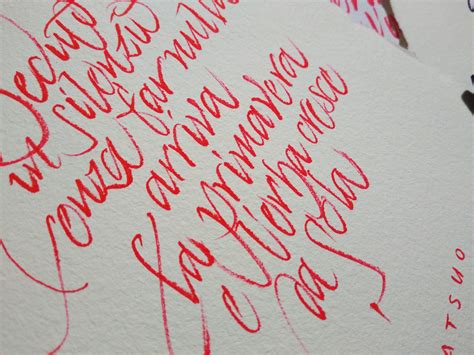 Seduto
in silenzio
senza far
arriva
la primavera
e l'erba cresce
da sola
ATSUO